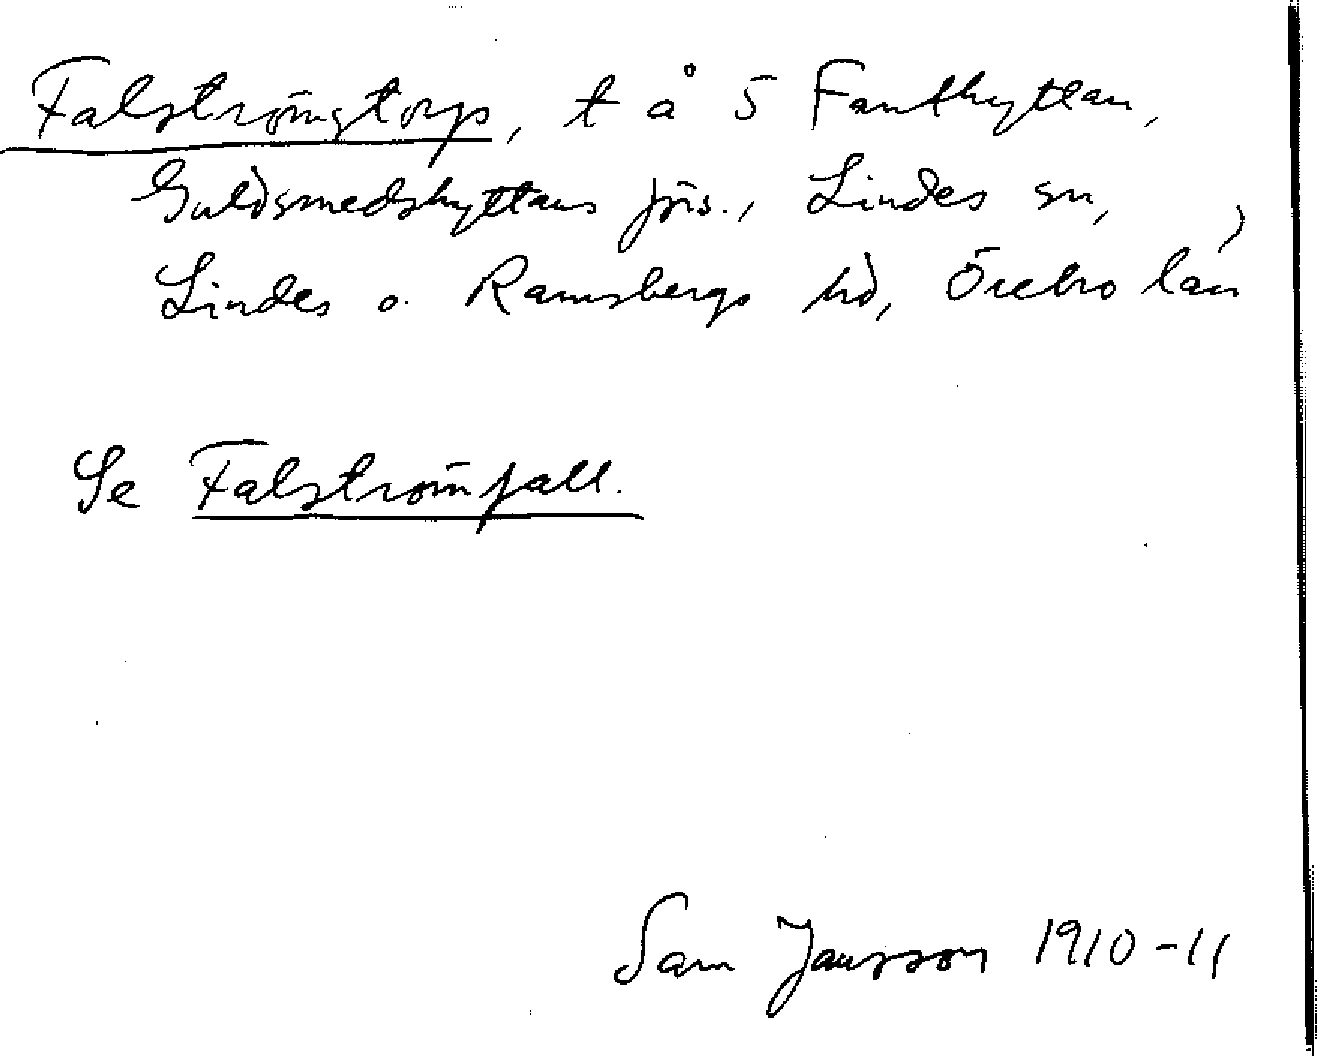 Falströmstorp, t å 5 Fanthyttan,
Guldsmedshyttans jvs., Lindes sn,
Lindes o. Ramsbergs hd, Örebro län
Se Falströmfall.
Sam Jansson 1910-11